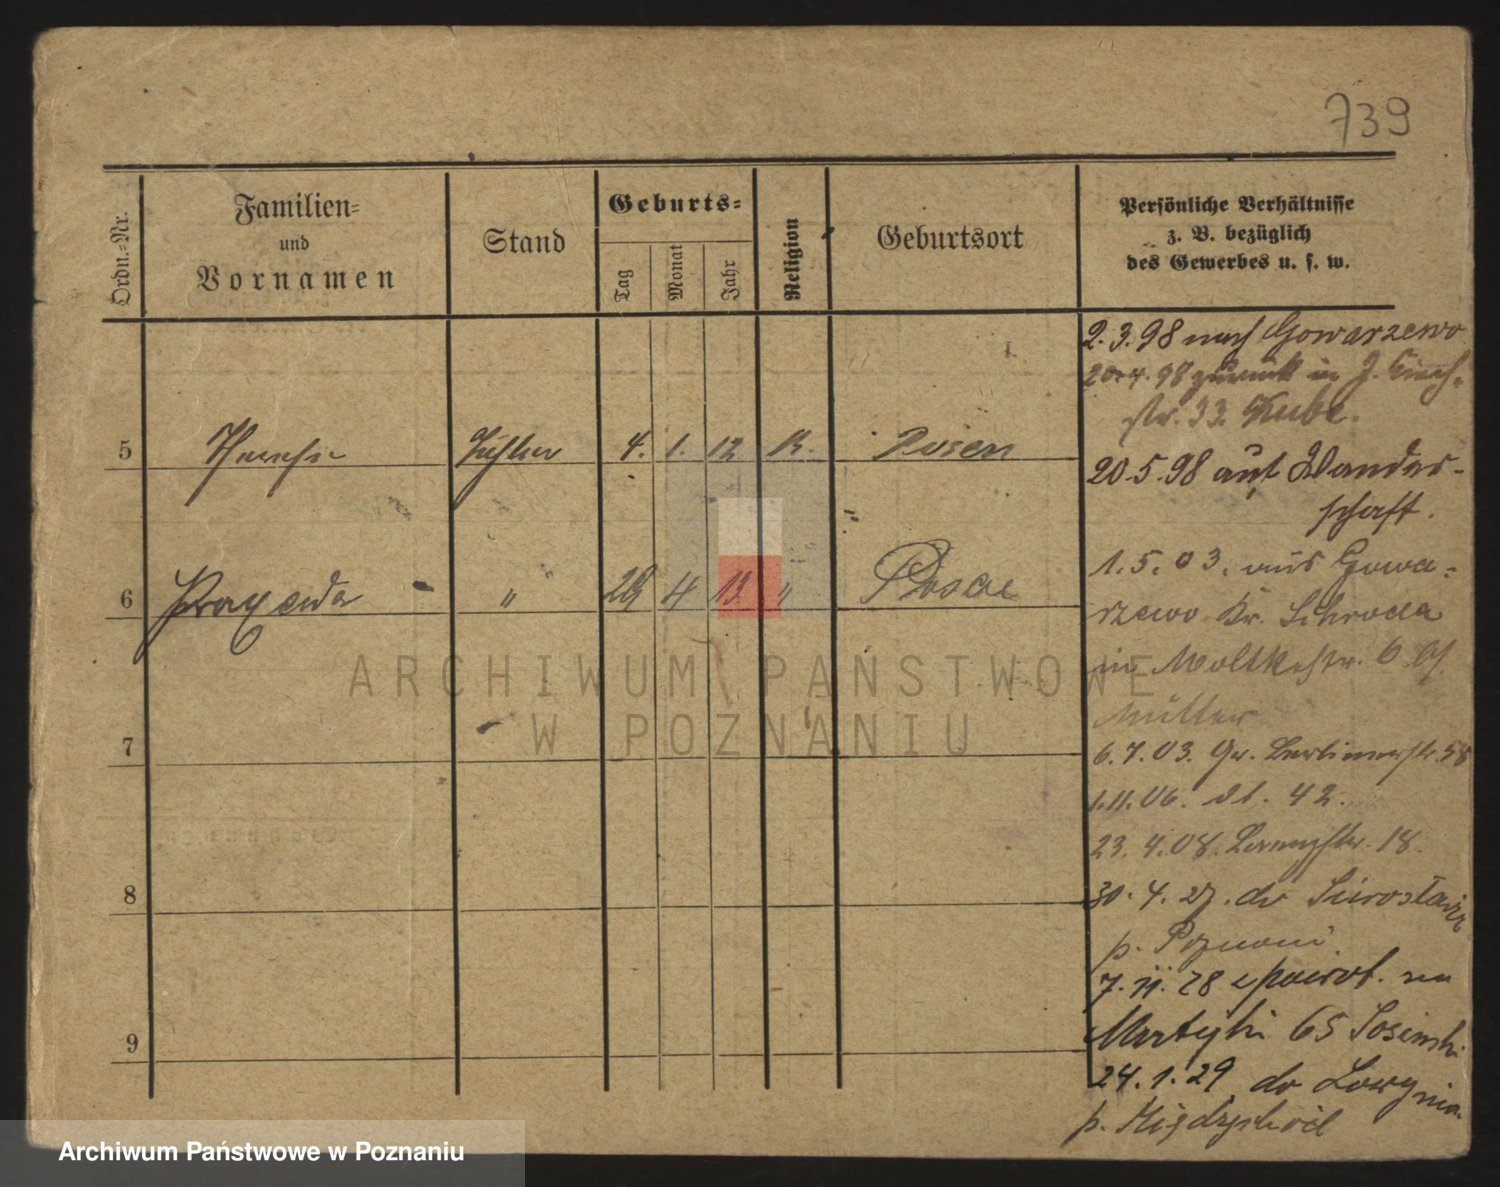 739
Ordn.-Nr.
Familien-
und
Vornamen
Stand
Geburts-
Tag
Monat
Jahr
Religion
Geburtsort
Persönliche Verhältnisse
z. B. bezüglich
des Gewerbes u. s. w.
2.3.98 nach Gowarzewo
20.4.98 zurück in
str. 33. Kube.
5 4. 1. 12 Posen
20.5.98 auf Wander-
schaft.
1.5.03. aus Gowa-
6 Praxeda " 4 " Posen
rzewo Kr. Schroda
in Moltkestr. 6 bf
Mutter
7
6.7.03. Gr. Berlinerstr. 58
1.11.06. dt. 42.
23.4.08. str. 18.
8
30.4.27. do
p. Poznań
7.11.28 z powrot. na
9
65 Sosinski
24.1.29 do
p. Międzychód
ARCHIWUM PAŃSTWOWE
W POZNANIU
Archiwum Państwowe w Poznaniu